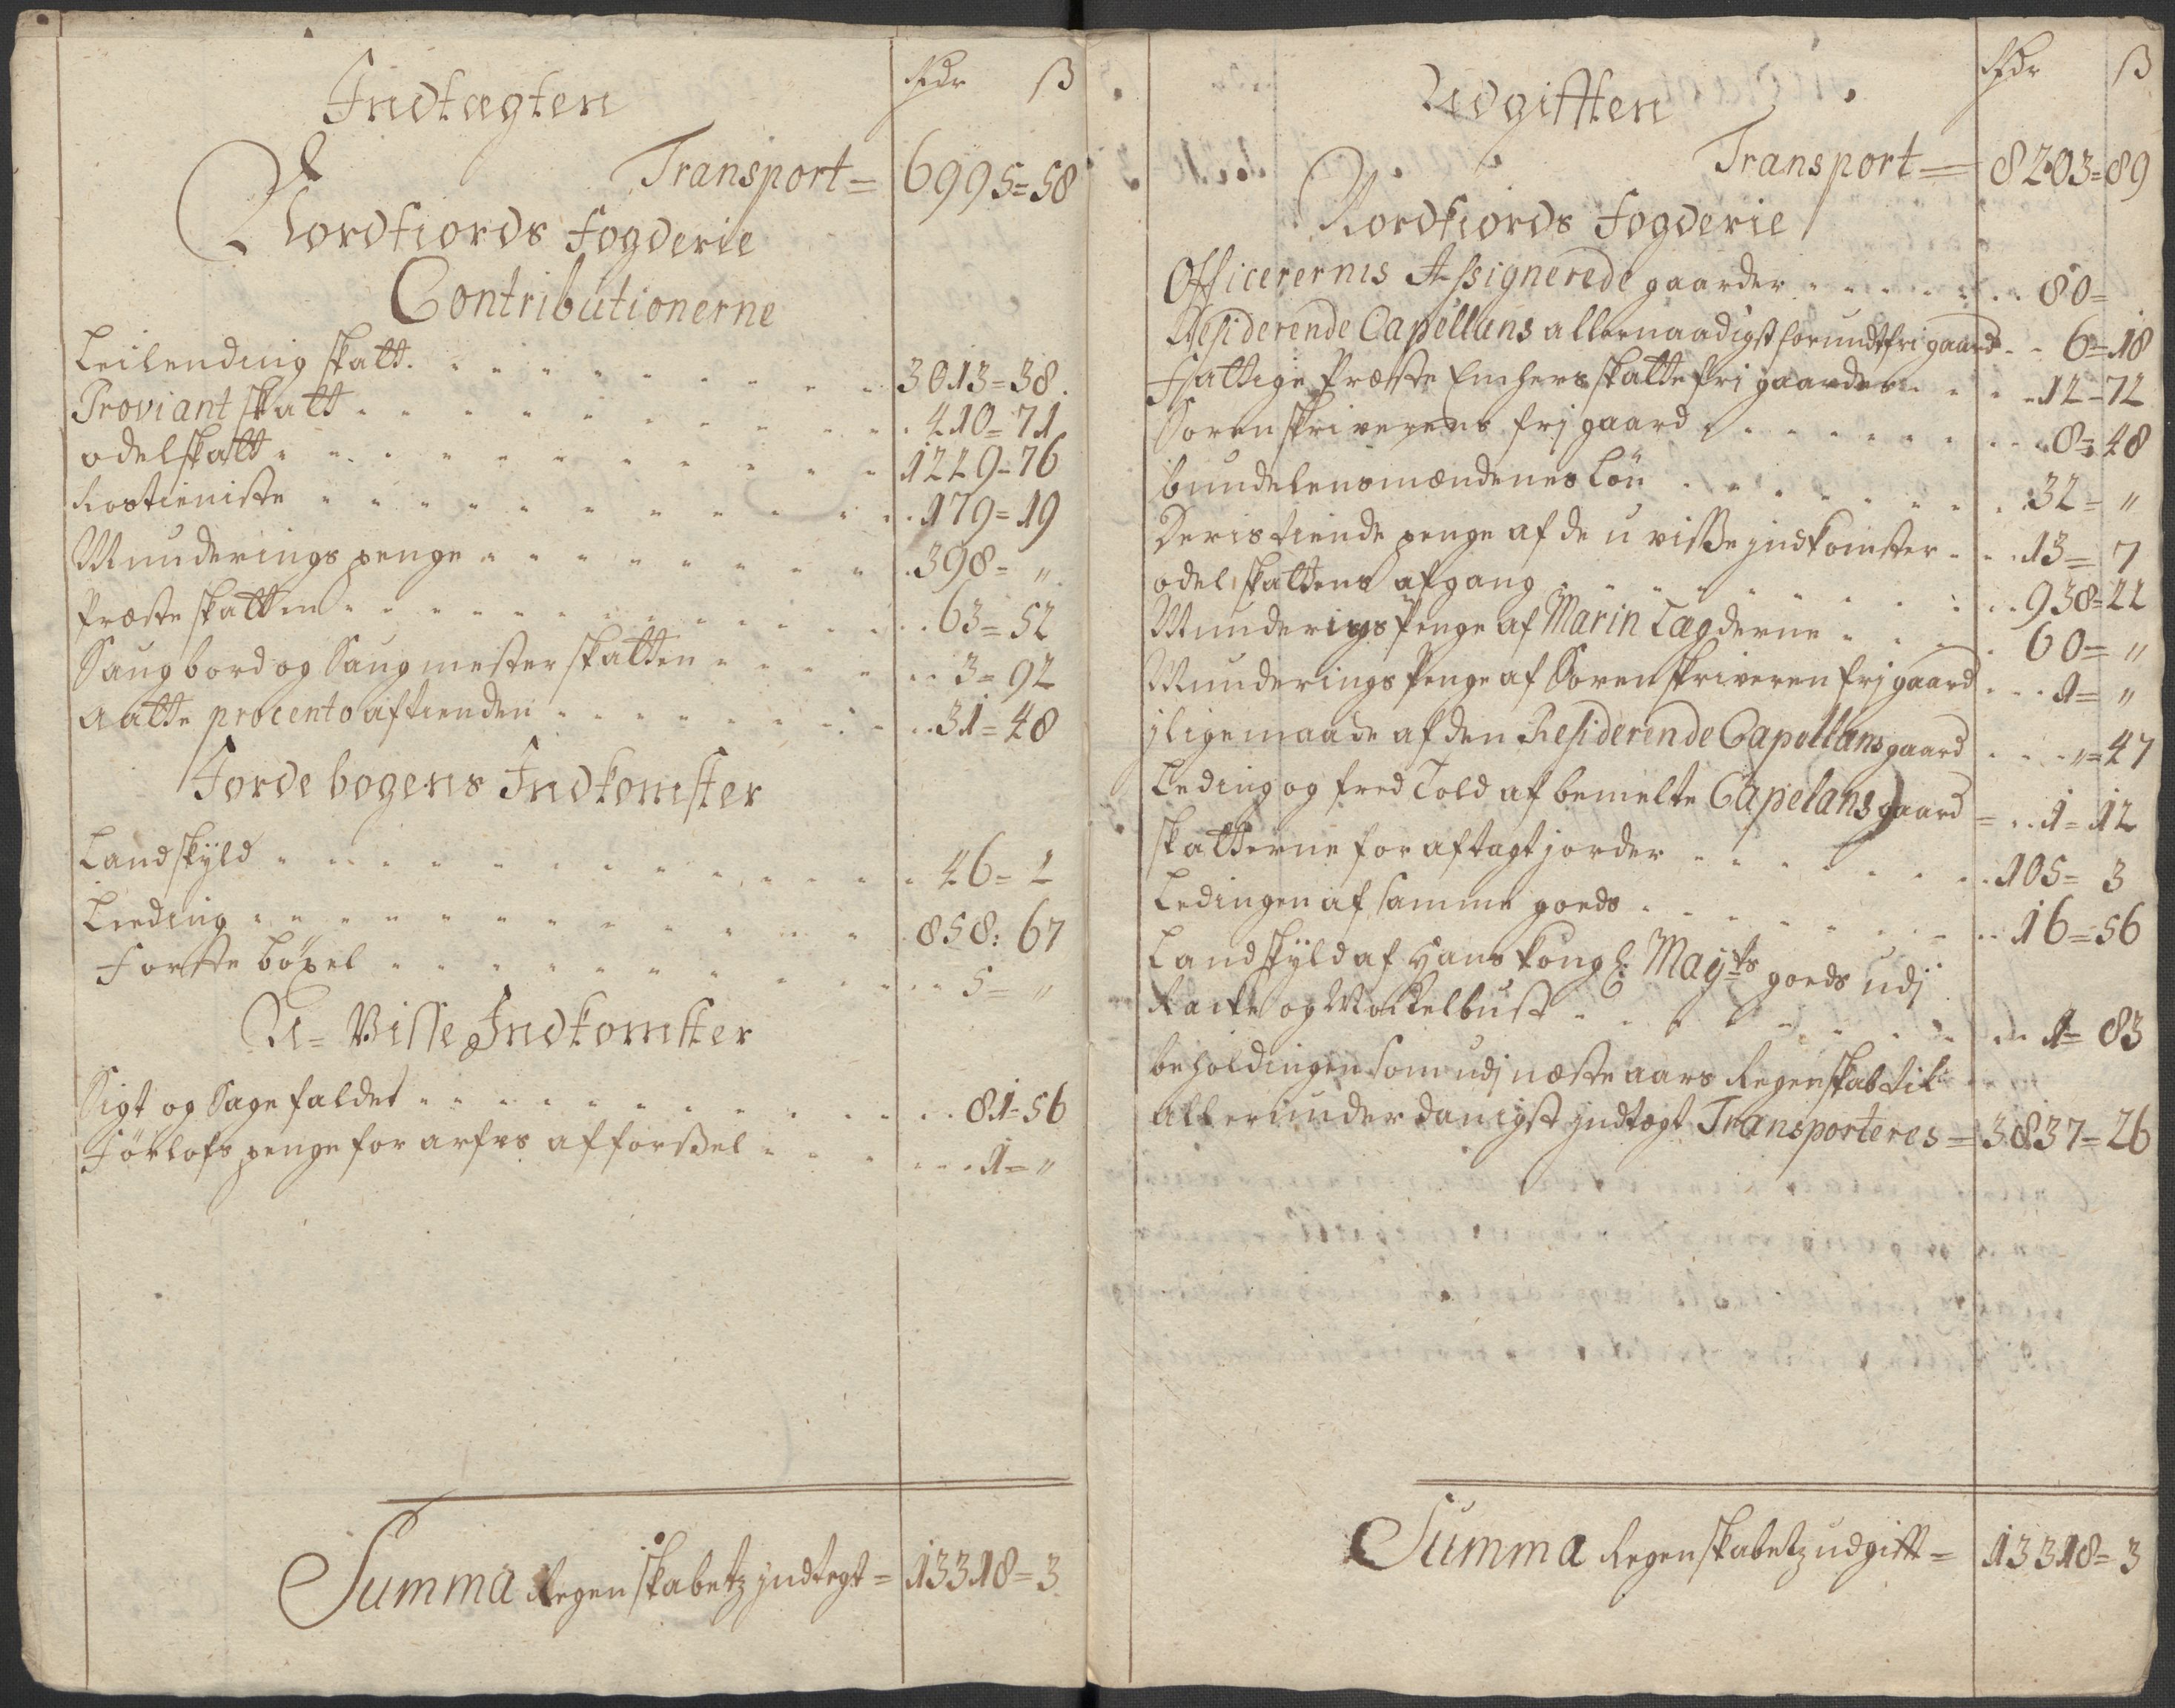 Indtægten
Rdr ß
Transport = 6995 = 58
Nordfiords Fogderie
Contributionerne
Leilending skatt . . . 3013 = 38
Proviant skatt . . . 410 = 71
odelskatt . . . 1229 = 76
Rostieniste . . . 179 = 19
Munderings penge . . . 398 = "
Præste skatten . . . 63 = 52
Saugbord og Saugmester skatten . . . 3 = 92
Aatte procento af tienden . . . 31 = 48
Jorde bogens Indkomster
Landskyld . . . 46 = 1
Leeding . . . 858 : 67
Første böxel . . . 5 = "
U = Visse Indkomster
Sigt og Sagefaldet . . . 81 = 56
Förlofs penge for arfes afförsel . . . 1 = "
Summa Regenskabetz jndtegt = 13318 = 3
Udgifften
Rdr ß
Transport = 8203 = 89
Nordfiords Fogderie
Officerernis Assignerede gaarder . . . 80 =
Residerende Capellans allernaadigst forundt fri gaard . . 6 = 18
Fattige Præste Enchers skatte fri gaarder . . . 12 = 72
Sorenskriverens frj gaard . . . 8 = 48
bundelensmændenes Lön . . . 32 = "
Deris tiende penge af de u visse jndkomster . . . 13 = 7
odel skattens afgang . . . 938 = 22
Munderings Penge af Marin Lægderne . . . 60 = "
Munderings Penge af Sorenskriveren frj gaard . . . 1 = "
jligemaade af den Residerende Capellans gaard . . . " = 47
Leding og fred Told af bemelte Capelans gaard = . . 1 = 12
skatterne for aftagt jorder . . . 105 = 3
Ledingen af samme goeds . . . 16 = 56
Landskyld af Hans kongl: Mayts goeds udj
Racke og Mockelbust . . . 1 = 83
beholdingen som udj næste aars Regenskab til
allerunderdanigst jndtægt Transporteres = 3837 = 26
Summa Regenskabetz udgifft = 13318 = 3